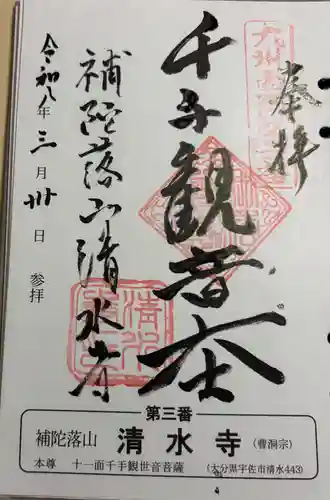 奉拝
千手観音
補陀落山清水寺
令和八年三月卅日 参拝
第三番
補陀落山 清水寺 (曹洞宗)
本尊 十一面千手観世音菩薩 (大分県宇佐市清水443)